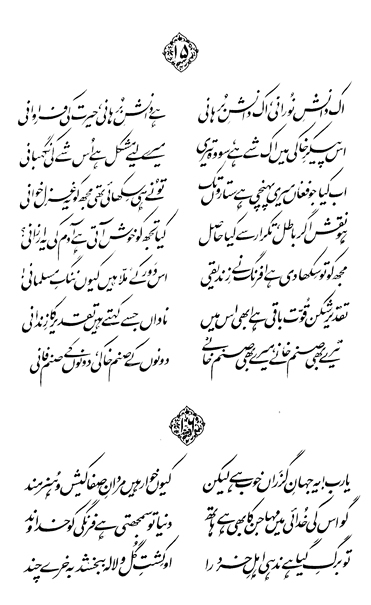 ۱۵
اک دانشِ نورانی، اک دانشِ برہانی
ہے دانشِ برہانی، حیرت کی فراوانی
اس پیکرِ خاکی میں اک شے ہے، سو وہ تیری
میرے لیے مشکل ہے اُس شے کی نگہبانی
اب کیا جو فغاں میری پہنچی ہے ستاروں تک
تُو نے ہی سکھائی تھی مجھ کو یہ غزل خوانی
ہو نقش اگر باطل، تکرار سے کیا حاصل
کیا تجھ کو خوش آتی ہے آدم کی یہ ارزانی؟
مجھ کو تو سکھا دی ہے افرنگ نے زِندیقی
اس دَور کے مُلّا ہیں کیوں ننگِ مسلمانی!
تقدیر شکن قُوّت باقی ہے ابھی اس میں
ناداں جسے کہتے ہیں تقدیر کا زِندانی
تیرے بھی صنم خانے، میرے بھی صنم خانے
دونوں کے صنم خاکی، دونوں کے صنم فانی
۱۶
یا رب! یہ جہانِ گُزَراں خوب ہے لیکن
کیوں خوار ہیں مردانِ صفا کیش و ہُنرمند
گو اس کی خُدائی میں مہاجن کا بھی ہے ہاتھ
دنیا تو سمجھتی ہے فرنگی کو خداوند
تو برگِ گِیا ہے ندہی اہلِ خرد را
او کِشتِ گُل و لالہ بہ بخشد بہ خرے چند